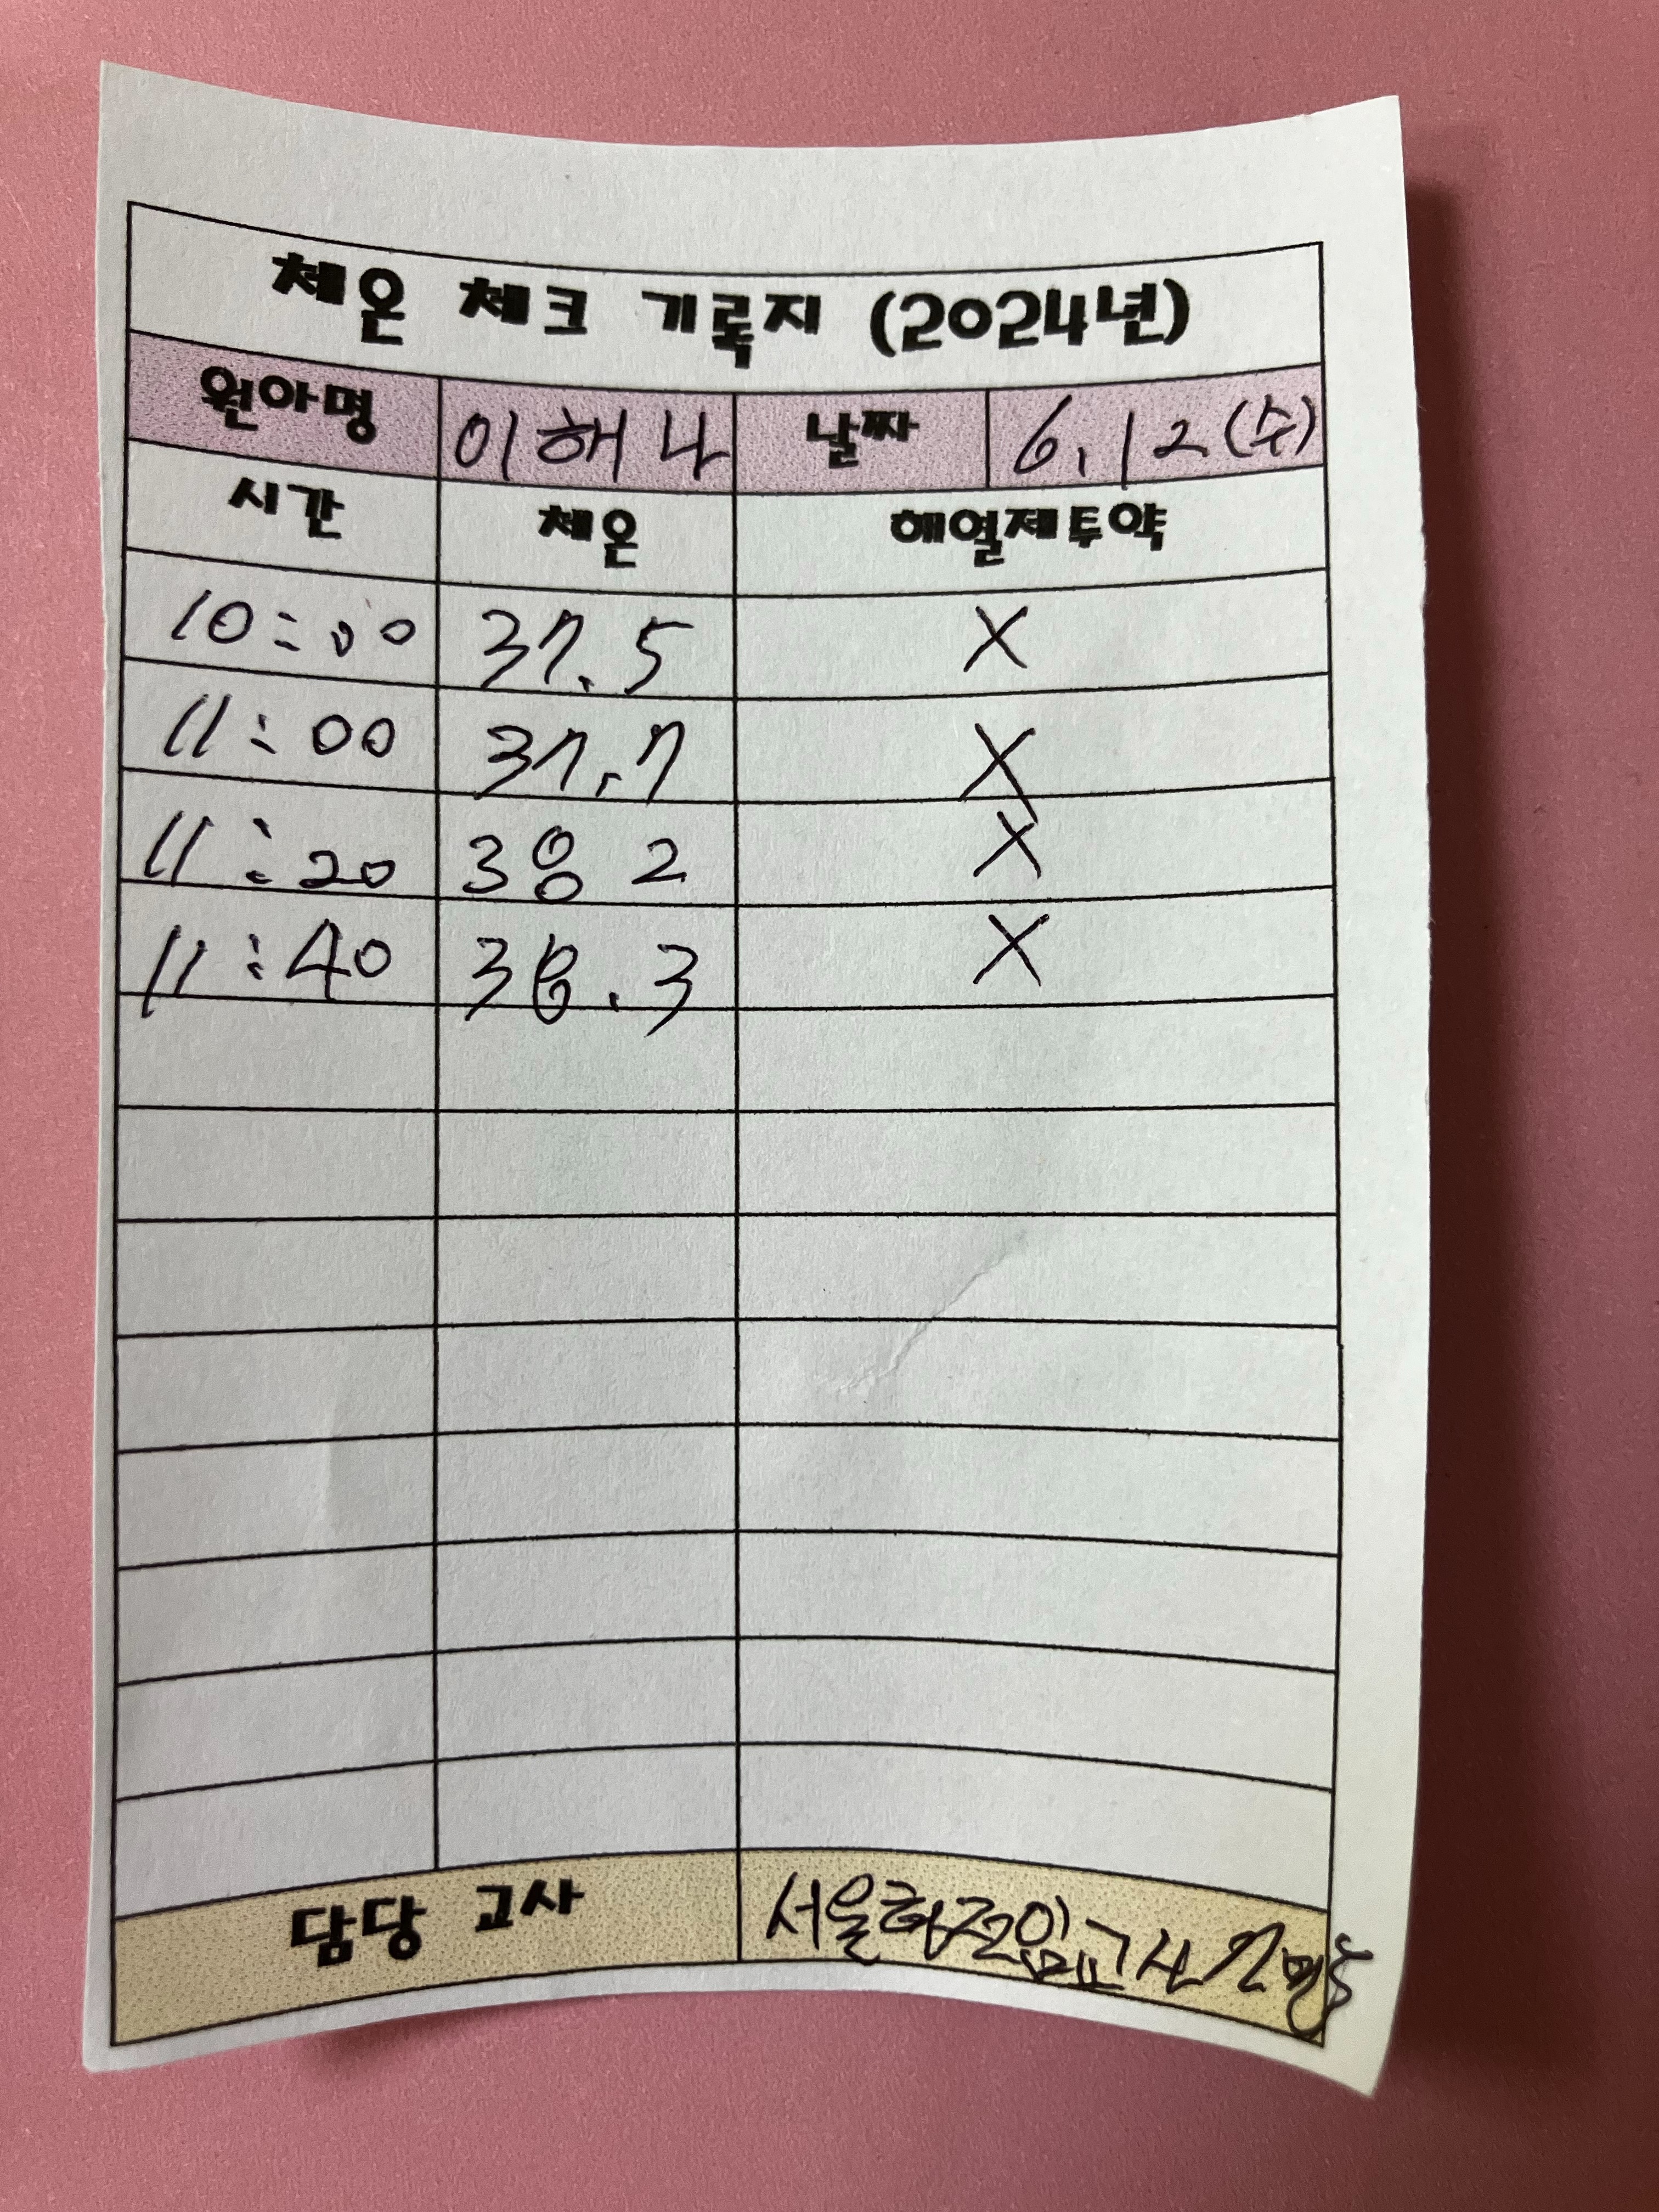 체온 체크 기록지 (2024년)
원아명 이해나 날짜 6.12(수)
시간 체온 해열제투약
10:00 37.5 X
11:00 37.7 X
11:20 38 2 X
11:40 38.3 X
담당 교사 서울형전임교사